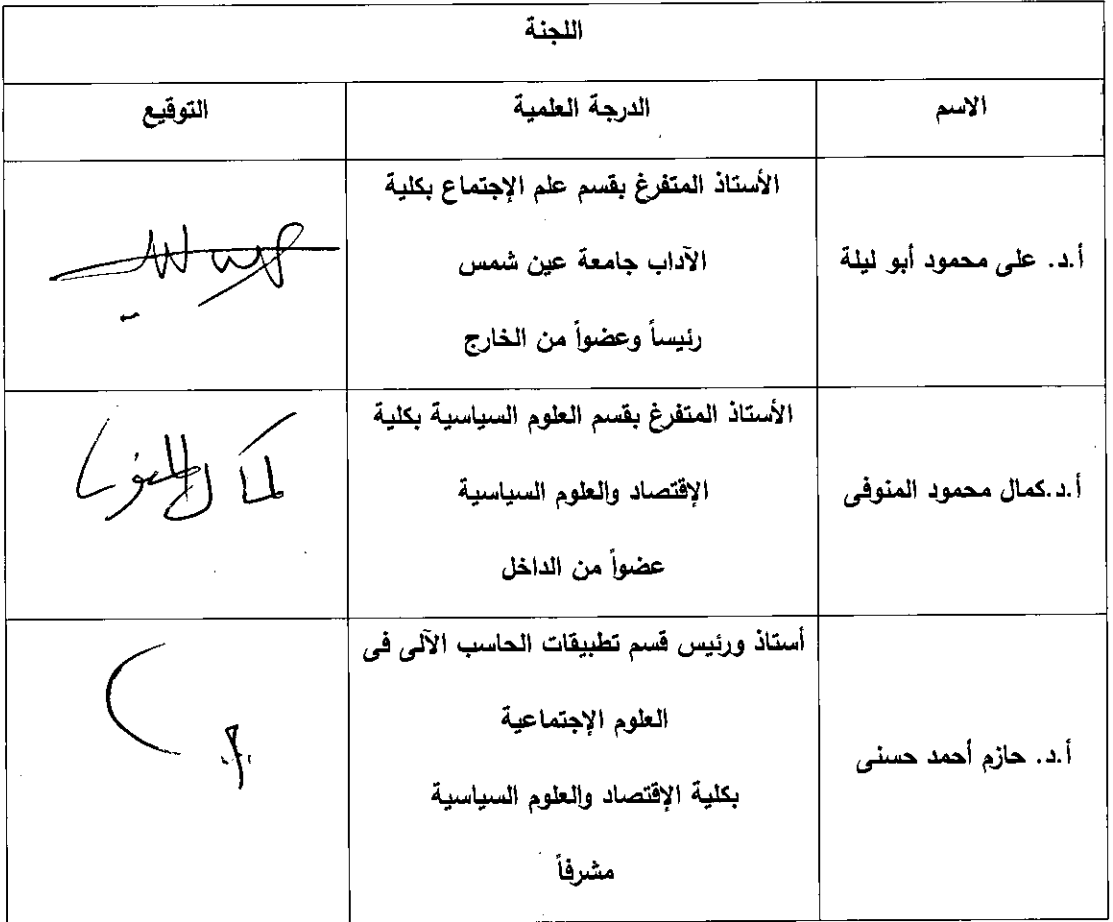 اللجنة
الاسم
الدرجة العلمية
التوقيع
أ.د. على محمود أبو ليلة
الأستاذ المتفرغ بقسم علم الإجتماع بكلية
الآداب جامعة عين شمس
رئيساً وعضواً من الخارج
أ.د.كمال محمود المنوفى
الأستاذ المتفرغ بقسم العلوم السياسية بكلية
الإقتصاد والعلوم السياسية
عضواً من الداخل
أ.د. حازم أحمد حسنى
أستاذ ورئيس قسم تطبيقات الحاسب الآلى فى
العلوم الإجتماعية
بكلية الإقتصاد والعلوم السياسية
مشرفاً